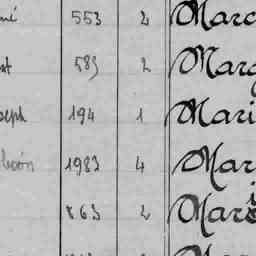 né 553 2 Marc
st 583 2 Marg
seph 194 1 Mari
1983 4 Mar
863 2 Mar